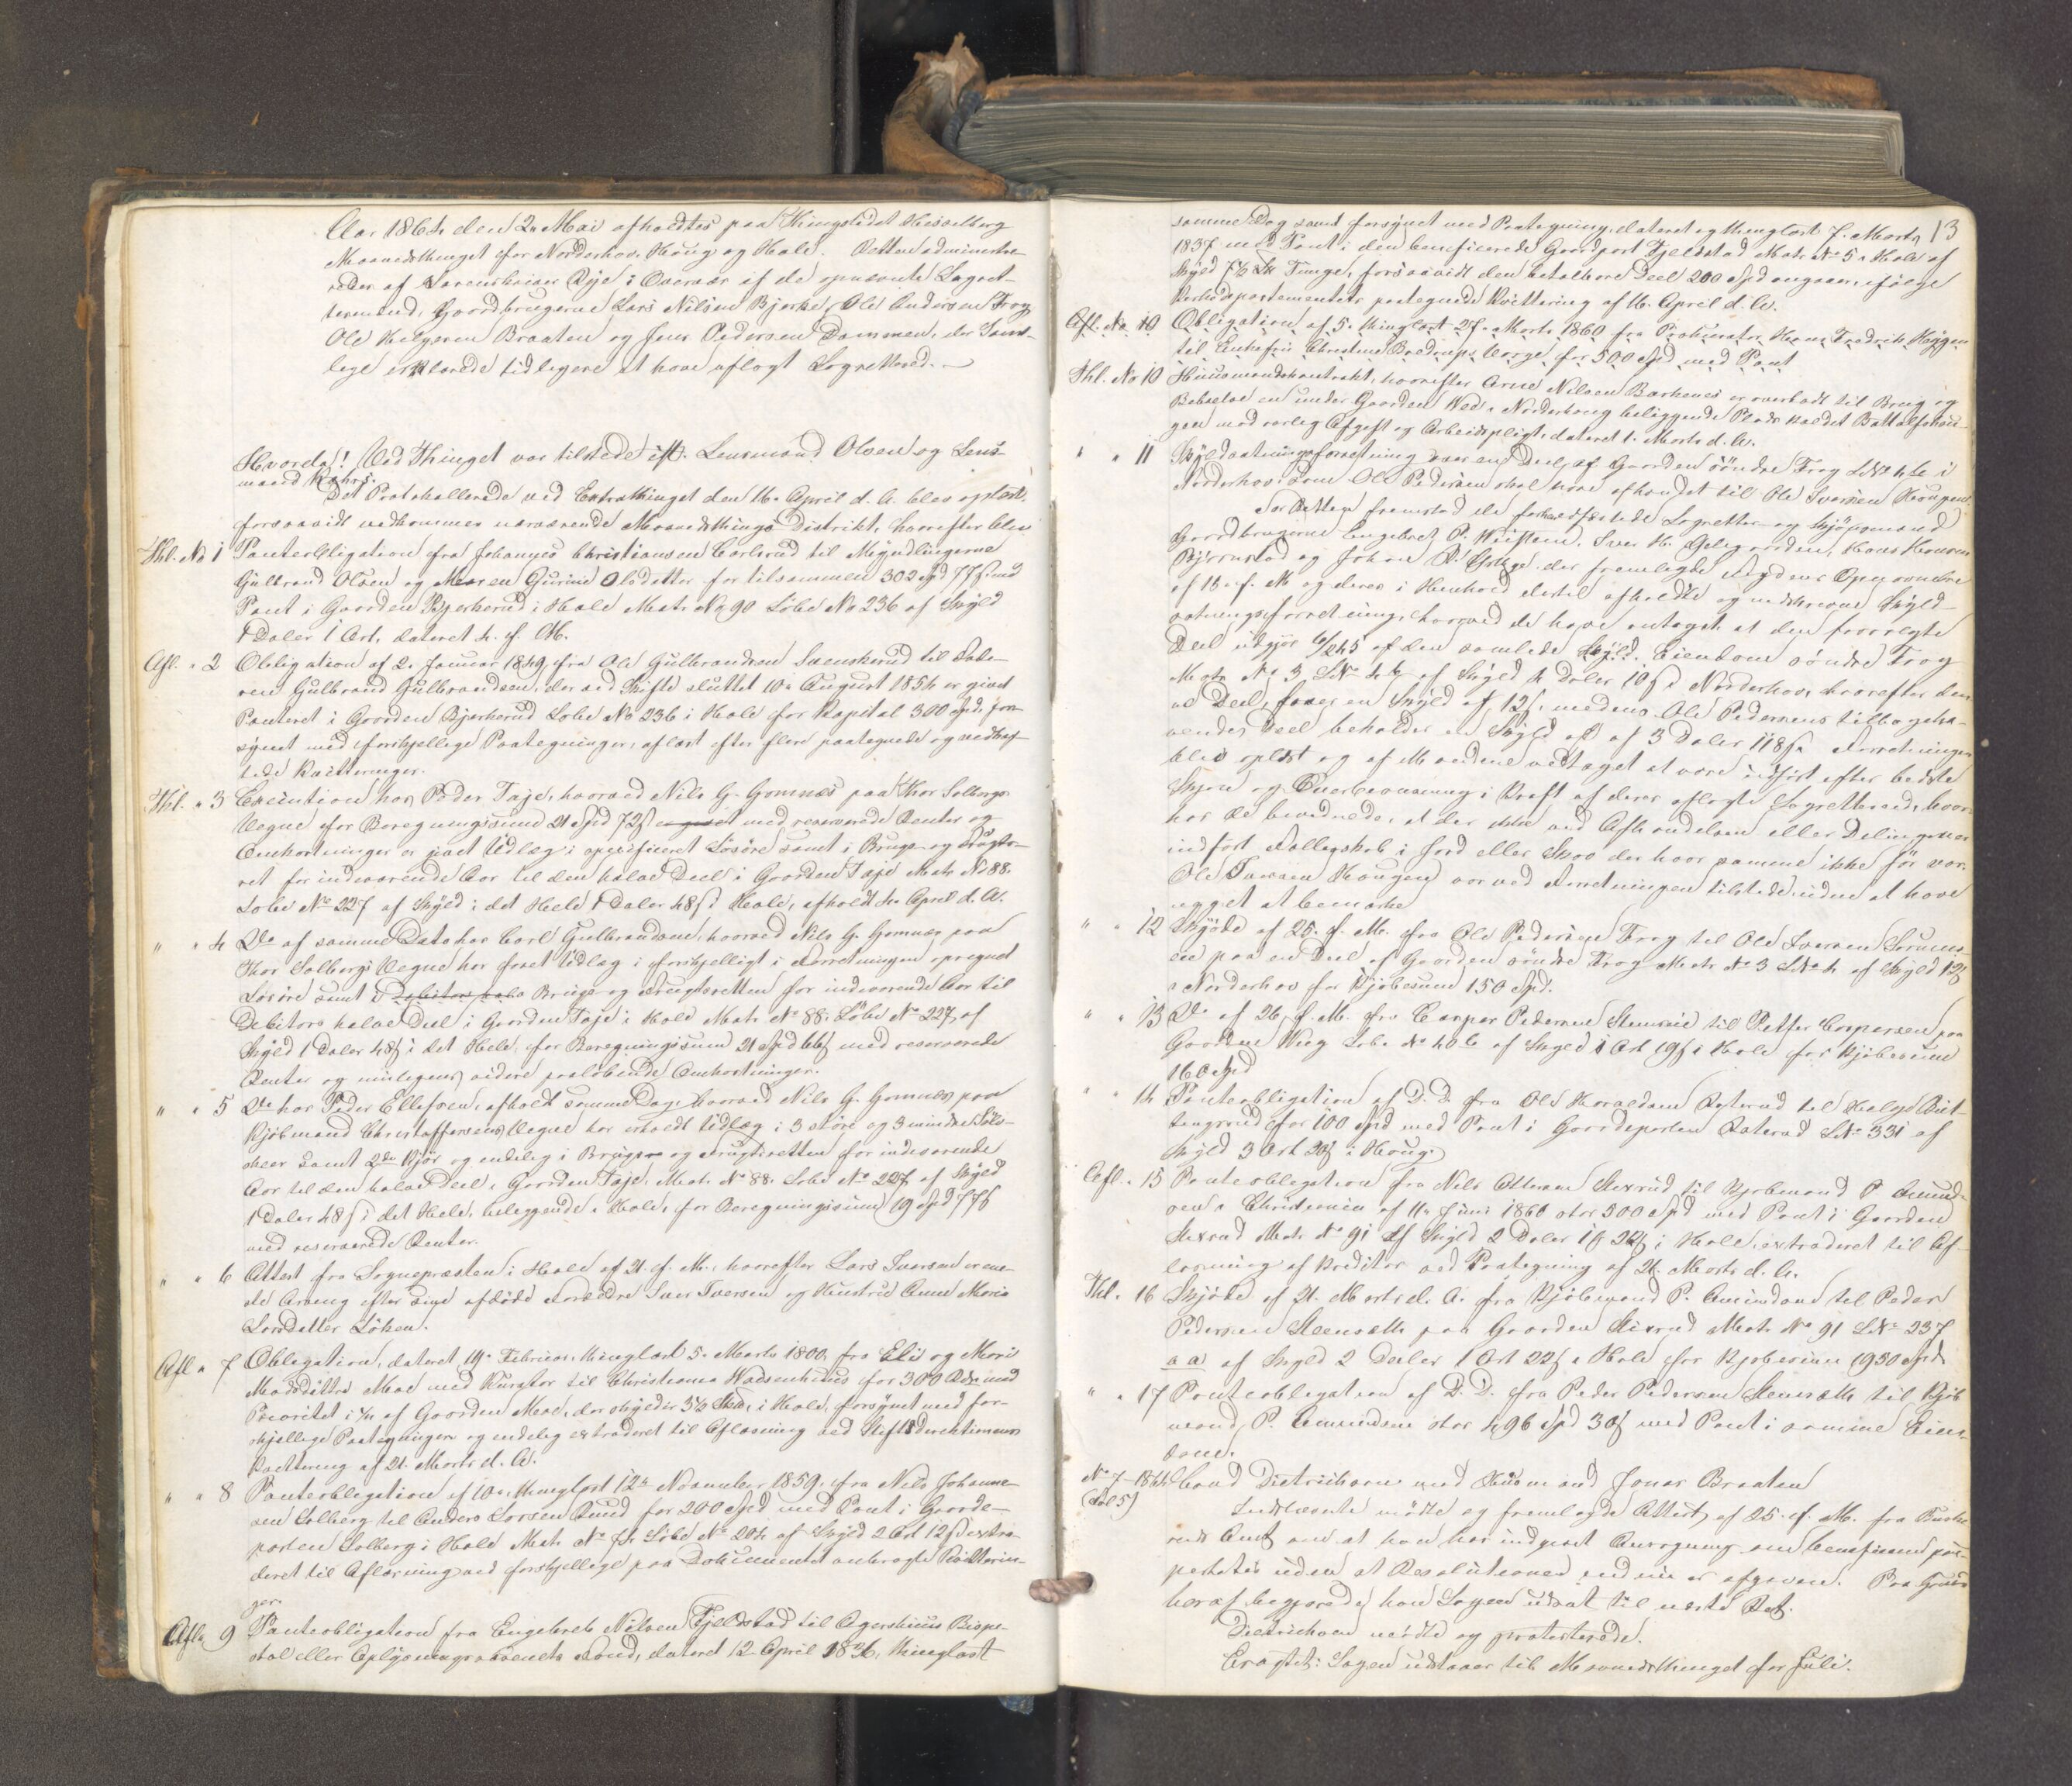 Aar 1864 den 2. Mai afholdtes paa Thingstedet Hesselberg
Maanedsthinget for Norderhov, Houg og Hole. Retten administre-
redes af Sorenskriver Rye i Overvær af de opnævnte Lagret-
temænd, Gaardbrugerne Lars Nilsen Bjerke, Ole Andersen Frog
Ole Helgesen Braaten og Jens Pedersen Dammen, der Sam-
lige erklærede tidligere at have aflagt Lagretteed.
Hvorda! Ved Thinget var tilstede Lensmand Olsen og Lens-
mand
Det Protokollerede ved Extrathinget den 16. April d. A. blev oplæst,
forsaavidt vedkommer nærværende Maanedsthings Distrikt, hvorefter blev
Thl. No 1 Panteobligation fra Johannes Christiansen Carlsrud til Myndlingerne
Gulbrand Olsen og Maren Gurine Olsdatter for tilsammen 302 Spd 77 ß med
Pant i Gaarden Bjerkerud i Hole Matr. No 90 Løbe No 236 af Skyld
1 Daler 1 Ort, dateret 4. f. M.
Afl. " 2 Obligation af 2. Januar 1849 fra Ole Gulbrandsen Svenskerud til Fade-
ren Gulbrand Gulbrandsen, der ved Skifte sluttet 10. August 1854 er givet
Panteret i Gaarden Bjerkerud Løbe No 236 i Hole for Kapital 300 Spd. for-
synet med forskjellige Paategninger, aflæst efter flere paategnede og vedhef-
tede Kvitteringer.
Thl. " 3 Execution hos Peder Faje, hvorved Nils G. Gomnæs paa Thor Solbergs
Vegne for Beregningssum 21 Spd 72 ß med reserverede Renter og
Omkostninger er gjort Udlæg i specificeret Løsøre samt i Brugs- og Frugtsret-
ten for indeværende Aar til den halve Deel i Gaarden Faje Matr. No 88.
Løbe No 227 af Skyld i det Hele 1 Daler 48 ß i Hole, afholdt 4. April d. A.
" " 4 Do af samme Dato hos Carl Gulbrandsen, hvorved Nils G. Gomnæs paa
Thor Solbergs Vegne har faaet Udlæg i forskjelligt i Forretningen opregnet
Løsøre samt i Brugs- og Frugtsretten for indeværende Aar til
Debitors halve Deel i Gaarden Faje i Hole Matr. No 88. Løbe No 227, af
Skyld 1 Daler 48 ß i det Hele, for Beregningssum 21 Spd 66 ß med reserverede
Renter og muligens videre paaløbende Omkostninger.
" " 5 Do hos Peder Ellefsen, afholdt samme Dag, hvorved Nils G. Gomnæs paa
Kjøbmand Christoffersens Vegne har erholdt Udlæg i 3 større og 3 mindre Sølv-
skeer samt 2de Kjør og endelig i Brugs- og Frugtsretten for indeværende
Aar til den halve Deel i Gaarden Faje, Matr. No 88. Løbe No 227 af Skyld
1 Daler 48 ß i det Hele, beliggende i Hole, for Beregningssum 19 Spd 77 ß
med reserverede Renter.
" " 6 Attest fra Sognepræsten i Hole af 21. f. M., hvorefter Lars Iversen er ene-
ste Arving efter sine afdøde Forældre Iver Iversen og Hustru Anne Marie
Larsdatter Løken.
Afl. " 7 Obligation, dateret 19. Februar, thinglæst 5. Marts 1800, fra Eli og Mari
Madsdøttre Moe med Kurator til Christiania Waisenhuus for 300 Rdr. med
Prioritet i af Gaarden Moe, der skylder i Hole, forsynet med for-
skjellige Paategninger og endelig extraderet til Aflæsning ved Stiftsdirektionens
Kvittering af 21. Marts d. A.
" " 8 Panteobligation af 10., thinglæst 12. November 1859, fra Nils Johanne-
sen Solberg til Anders Larsen Rund for 200 Spd. med Pant i Gaard-
parten Solberg i Hole Matr. No 74 Løbe No 204 af Skyld 2 Ort 12 ß extra-
deret til Aflæsning ved forskjellige paa Dokumentet anbragte Kvitterin-
ger.
Afl. " 9 Panteobligation fra Engebret Nilsen Fjeldstad til Agershuus Bispe-
stol eller Oplysningsvæsenets Fond, dateret 12. April 1836, thinglæst
13
samme Dag samt forsynet med Paategning, dateret og thinglæst 7. Marts
1837 med Pant i den beneficerede Gaardpart Fjeldstad Matr. No 5 i Hole af
Skyld Tunge, forsaavidt den betalbare Deel 200 Spd angaar, ifølge
Kirkedepartementets paategnede Kvittering af 16. April d. A.
Afl. No 10 Obligation af 5., thinglæst 27. Marts 1860 fra Prokurator Hans Fredrik Heyerdahl
til Enkefru Christine Bredrups Værge for 500 Spd med Pant
Thl. No 10 Huusmandskontrakt, hvorefter Arne Nilsen Barkenes er overladt til Brug og
Beboelse en under Gaarden Ved i Norderhoug beliggende Plads kaldet
gen mod aarlig Afgift og Arbeidspligt, dateret 1. Marts d. A.
" " 11 Skyldsætningsforretning over en Deel af Gaarden søndre Frog i
Norderhov, som Ole Pedersen skal have afhændet til Ole Iversen Hougen.
For Retten fremstod de Lagrettes- og Skjønsmænd
Gaardbrugerne Engebret P. Iver H. Gjelgaarden, Hans Hansen
Bjørnstad og Johan der fremlagde Fogdens Opnævnelse
af 18. f. M og deres i Henhold dertil afholdte og nedskrevne Skyld-
sætningsforretning, hvorved de have antaget, at den fravalgte
Deel udgjør 6/245 af den samlede Skyld. Eiendom søndre Frog
Matr. No 3 LNo 4 b, af Skyld 4 Daler 10 ß i Norderhov, hvorefter den-
ne Deel faaer en Skyld af 12 ß, medens Ole Pedersens tilbageha-
vende Deel beholder en Skyld af 3 Daler 118 ß. Forretningen
blev oplæst og af Mændene vedtaget at være udført efter bedste
Skjøn og Overbeviisning i Kraft af deres aflagte Lagretteed, hvor-
hos de bevidnede, at der ikke ved Afhændelsen eller Delingen er
indført Fællesskab i Jord eller Skov der hvor samme ikke før var.
Ole Iversen Hougen var ved Forretningen tilstede uden at have
noget at bemærke
" " 12 Skjøde af 25. f. M. fra Ole Pedersen Frog til Ole Iversen
en paa en Deel af Gaarden søndre Frog Matr. No 3 LNo 4 af Skyld 12 ß
i Norderhov for Kjøbesum 150 Spd.
" " 13 Do af 26. f. M. fra Casper Pedersen til Petter Caspersen paa
Gaarden Løbe No 40 b af Skyld 1 Ort 19 ß i Hole for Kjøbesum
160 Spd
" " 14 Panteobligation af D. D. fra Ole Haraldsen Raterud til Helge But-
tingsrud for 100 Spd med Pant i Gaardparten Raterud LNo 331 af
Skyld 3 Ort 20 ß i Houg.
Afl. " 15 Panteobligation fra Nils Ottersen Stixrud til Kjøbmand P. Amund-
sen i Christiania af 11. Juni 1860 stor 500 Spd med Pant i Gaarden
Stixrud Matr. No 91 af Skyld 2 Daler 1 ß 22 ß i Hole, extraderet til Af-
læsning af Kreditor ved Paategning af 21. Marts d. A.
Thl. " 16 Skjøde af 21. Marts d. A. fra Kjøbmand P. Amundsen til Peder
Pedersen Steensæth paa Gaarden Stixrud Matr. No 91 LNo 237
a a af Skyld 2 Daler 1 Ort 22 ß i Hole for Kjøbesum 1950 Spd.
" " 17 Panteobligation af D. D. fra Peder Pedersen Steensæth til Kjøb-
mand P. Amundsen stor 496 Spd 30 ß med Pant i samme Eien-
dom.
No 7-1864 Cand Dietrichson med Huusmand Jonas Braaten
(Fol 5)
Indstævnte mødte og fremlagde Attest af 25. f. M. fra Buske-
ruds Amt om at han har indgivet Ansøgning om beneficium pau-
pertatis uden at Resolutionen endnu er afgiven. Paa Grund
heraf begjærede han Sagen udsat til næste Ret.
Dietrichson mødte og protesterede.
Eragtet: Sagen udstaaer til Maanedsthinget for Juli.